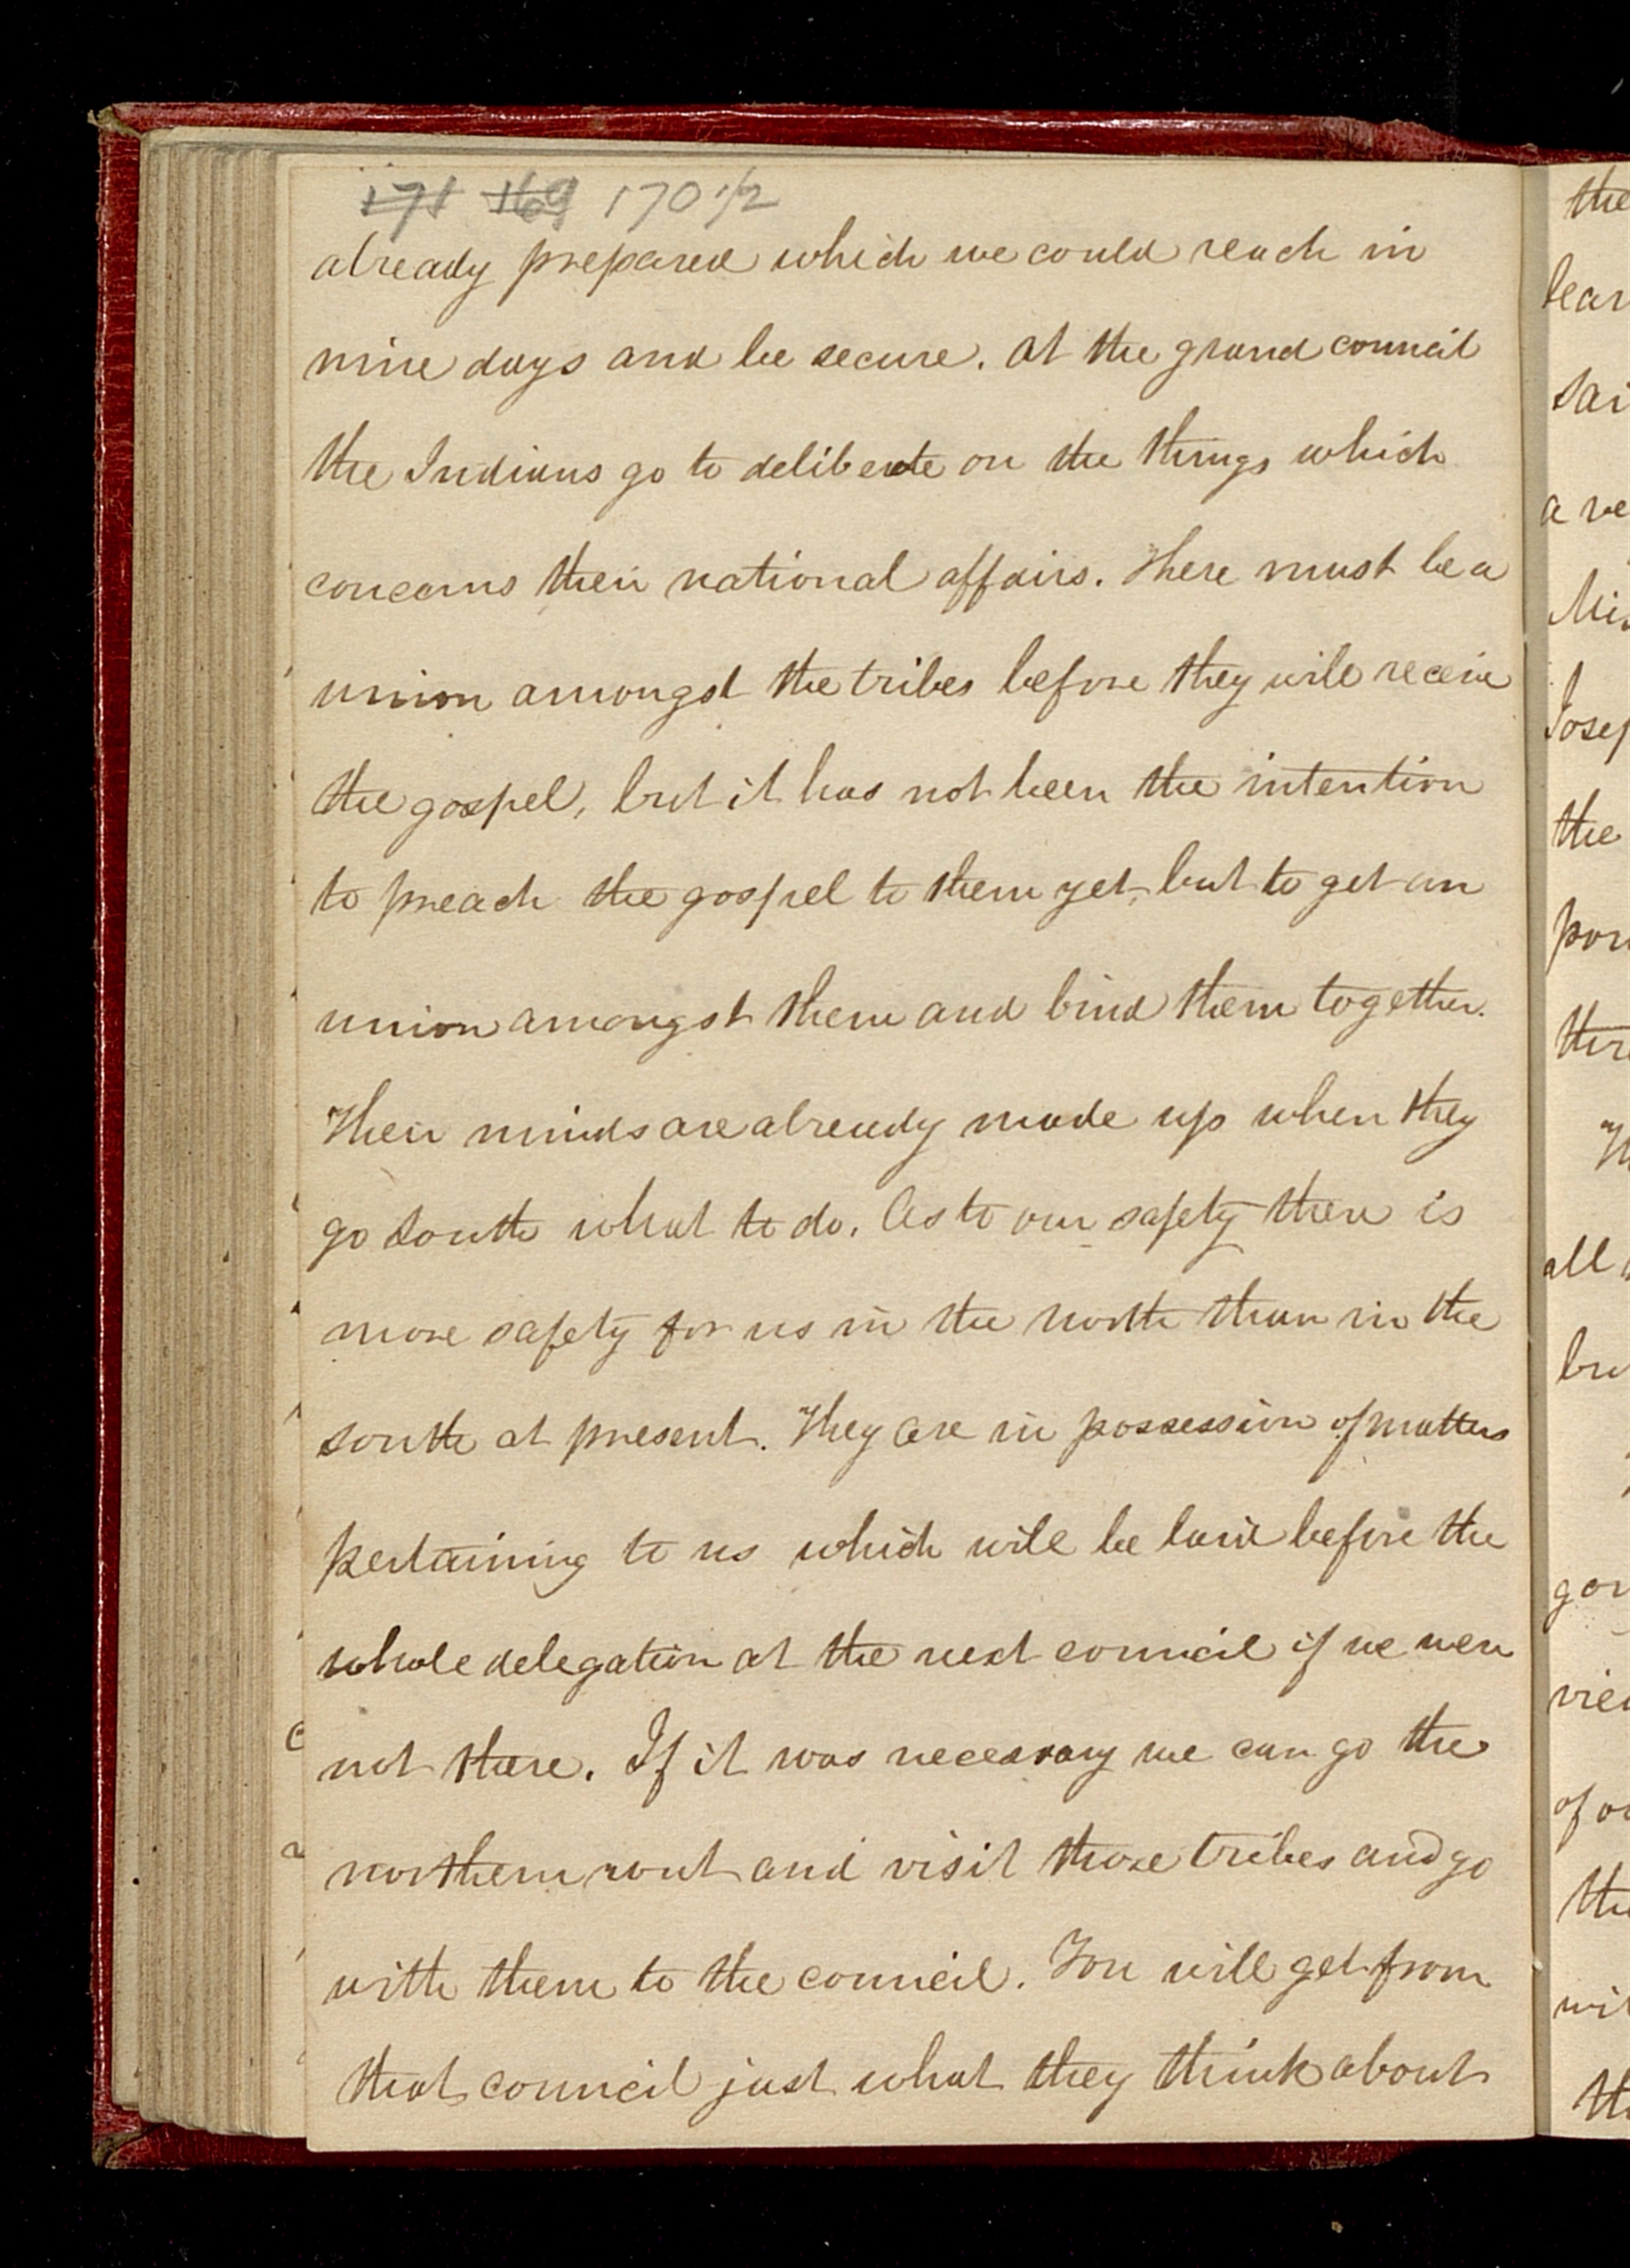 171 169 170 1/2
already prepared which we could reach in
nine days and be secure. at the grand council
the Indians go to deliberate on the things which
concerns their national affairs. There must be a
union amongst the tribes before they will receive
the gospel, but it has not been the intention
to preach the gospel to them yet, but to get an
union amongst them and bind them together.
Their minds are already made up when they
go South what to do. As to our safety there is
more safety for us in the north than in the
south at present. They are in possession of matters
pertaining to us which will be laid before the
whole delegation at the next council if we were
not there. If it was necessary we can go the
northern rout and visit those tribes and go
with them to the council. You will get from
that council just what they think about
the
lear
sai
a ve
Mis
Josep
the
por
ther
all
bu
gov
view
of ou
the
wit
th